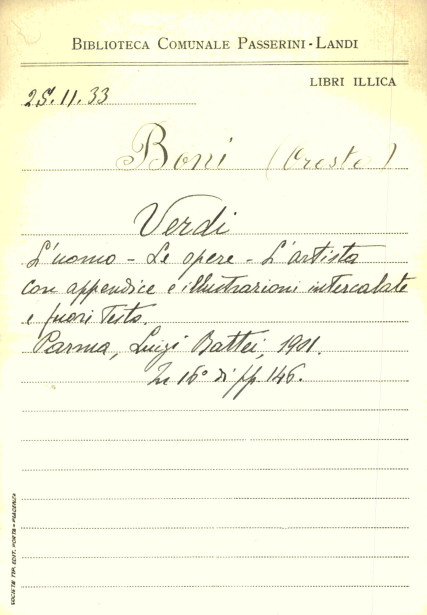 BIBLIOTECA COMUNALE PASSERINI-LANDI
LIBRI ILLICA
25.11.33
Boni (Oreste)
Verdi
L'uomo - Le opere - L'artista
con appendice e illustrazioni intercalate
e fuori testo.
Parma, Luigi Battei, 1901.
In 16° di pp. 146.
SOCIETÀ TIP. EDIT. PORTA - PIACENZA